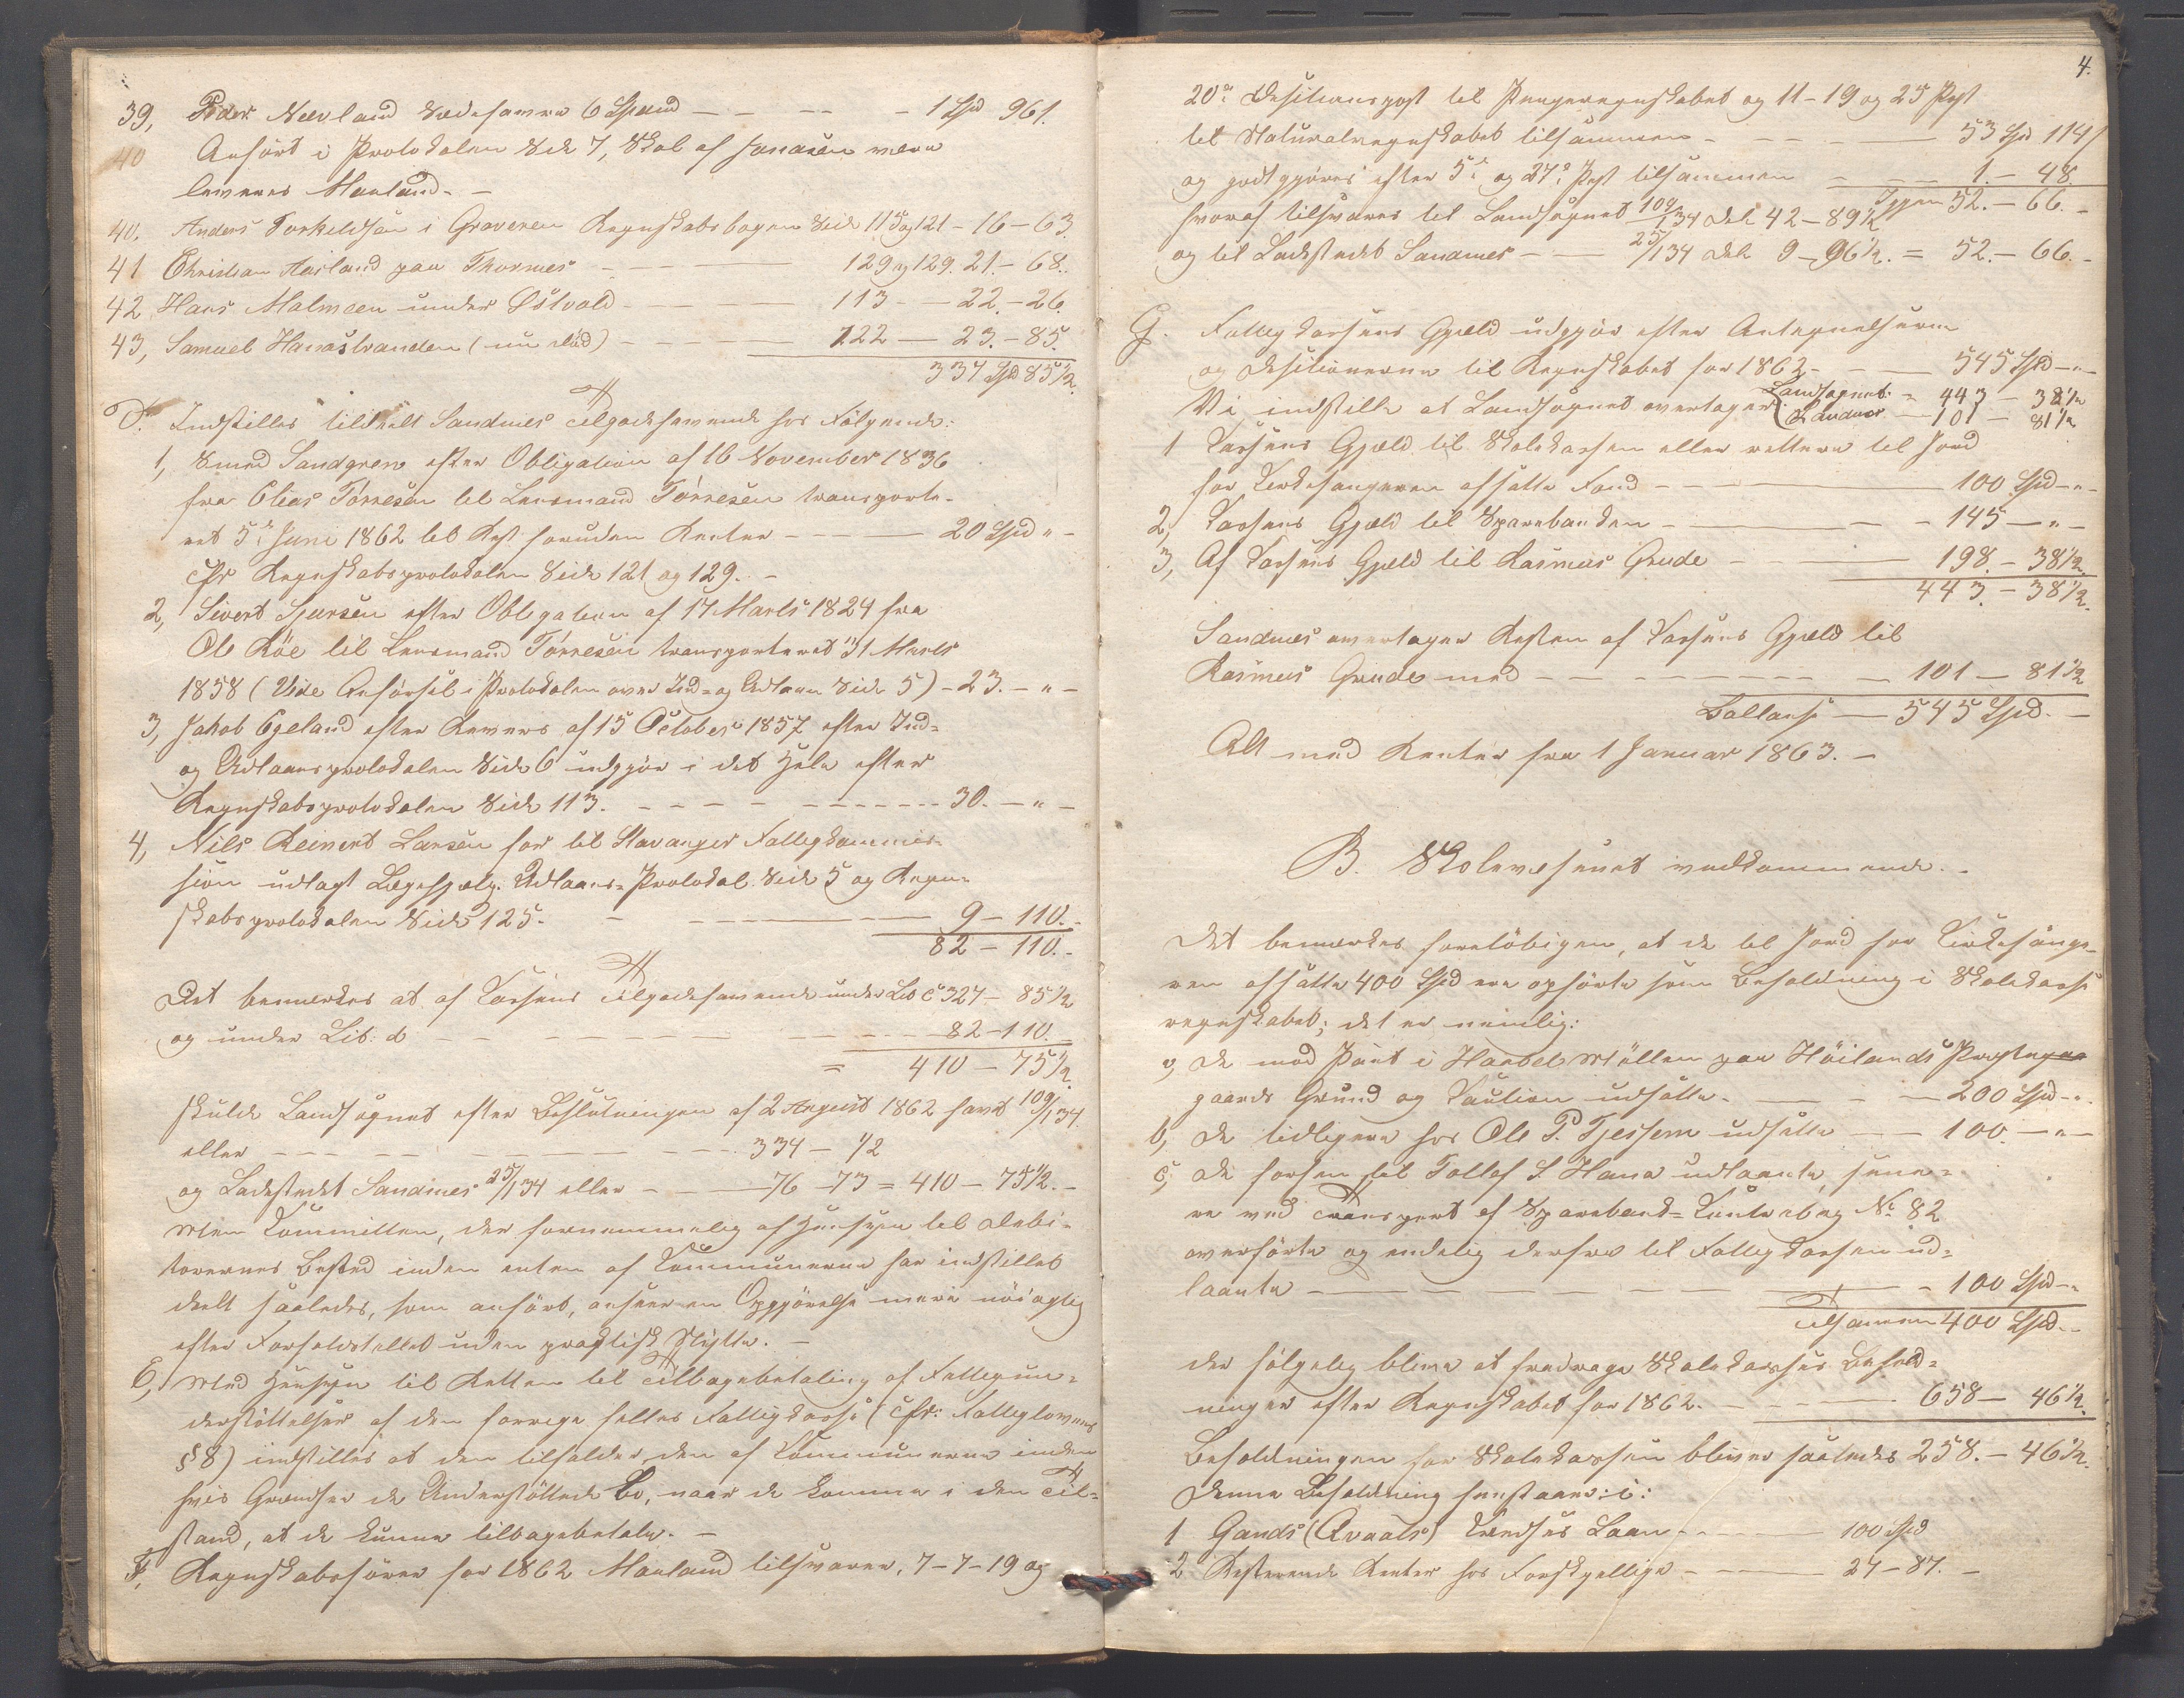 39, Peder Nævland Vedisamna 6 Spand — — — 1 Spd 96 1.
40 Anført i Protokolen Side 7, Skal af Jonasen være
leveres Maaland. —
40. Anders Torkeldsøn i Graveren Regnskabsbogen Side 115 og 121 - 16 - 63.
41 Christian Aasland paa Thornes — 129 og 129. 21. - 68.
42 Hans Malmeen under Østvold — 113 — 22. - 26.
43, Samuel Hanastranden (nu död) — 122 — 23. - 85.
334 Spd 85½
D. Indstilles tildeelt Sandnes Tilgodehavende hos Følgende:
1, Smed Sandgren efter Obligation af 16 November 1836
fra Elias Tørresen til Lensmand Tørresen transporte-
ret 5te Juni 1862 til Rest foruden Renter — 20 Spd " -
cfr Regnskabsprotokolen Side 121 og 129. -
2, Sivert Sjursen efter Obligation af 17 Marts 1824 fra
Ole Röe til Lensmand Tørresen transporteret 31 Marts
1858 (Vide Anförsel i Protokolen over Ind- og Udlaan Side 5) - 23. - " -
3, Jakob Egeland efter Revers af 15 October 1857 efter Ind-
og Udlaansprotokolen Side 6 udgjör i det Hele efter
Regnskabsprotokolen Side 113. — 30. - " -
4, Nils Reinert Larsen for til Stavanger Fattigkommis-
sion udlagt Lægehjælp. Udlaans-Protokol Side 5 og Regn-
skabsprotokolen Side 125. — 9 - 110. -
82 - 110. -
Det bemærkes at af Kassens Tilgodehavende under Lit C 327 - 85½
og under Lit: d — 82 - 110.
= 410 - 75½.
skulde Landsognet efter Beslutningen af 2 August 1862 havt 109/134.
eller — 334 - ½
og Ladestedet Sandnes 25/134 eller — 76 - 73 = 410 - 75½. -
Men Committeen, der fornemmelig af Hensyn til Debi-
torernes Bosted inden enten af Kommunerne har indstillet
deelt saaledes, som anført, anseer en Opgjörelse mere nöiagtig
efter Forholdstallet uden praktisk Nytte. -
E, Med Hensyn til Retten til Tilbagebetaling af Fattigun-
derstöttelser af den forrige fælles Fattigkasse (cfr: Fattiglovens
§ 8) indstilles at den tilfalder den af Kommunerne inden
hvis Grændser de Understöttede bo, naar de komme i den Til-
stand, at de kunne tilbagebetale. -
F, Regnskabsförer for 1862 Maaland tilsvarer, 7 - 7 - 19 og
4.
20de Decisionspost til Pengeregnskabet og 11 - 19 og 25 Post
til Naturalregnskabet tilsammen — 53 Spd 114/
og godtgjöres efter 5te og 27de Post tilsammen — 1. - 48.
Igjen 52. - 66. -
hvoraf tilsvares til Landsognet 109/134 Dele 42 - 89½
og til Ladestedet Sandnes — 25/134 Dele 9 - 96½. = 52. - 66. -
G. Fattigkassens Gjæld udgjör efter Antegnelserne
og Decisionerne til Regnskabet for 1862 — 545 Spd - " -
Vi indstille at Landsognet overtager: Landsognet - 443 - 38½
Sandnes — 101 - 81½
1 Kassens Gjæld til Skolekassen eller rettere til Jord
for Kirkesangeren afsatte Fond — 100 Spd - " -
2, Kassens Gjæld til Sparebanken — 145 - " -
3, Af Kassens Gjæld til Rasmus Grude — 198. - 38½.
443. - 38½.
Sandnes overtager Resten af Kassens Gjæld til
Rasmus Grude med — 101 - 81½
Ballance — 545 Spd. -
Alt med Renter fra 1 Januar 1863. -
B. Skolevæsenet vedkommende. -
Det bemærkes foreløbigen, at de til Jord for Kirkesange-
ren afsatte 400 Spd ere opførte som Beholdning i Skolekasse
regnskabet; det er nemlig:
a, De mod Pant i Haabet Møllen paa Höilands Prestega
gaards Grund og Kaution udsatte. — 200 Spd - " -
b, De tidligere hos Ole P. Tjessem udsatte — 100. - " -
c, De forhen til Tollef S. Hana udlaante, sene-
re ved Transport af Sparebank-Kontrabog No 82
overförte og endelig derfra til Fattigkassen ud-
laante — 100 Spd - "
Tilsammen 400 Spd. -
der følgelig bliver at fradrage Skolekassens Behold-
ninger efter Regnskabet for 1862. — 658 - 46½.
Beholdningen for Skolekassen bliver saaledes 258. - 46½.
Denne Beholdning henstaaer: i:
1 Gands (Qvaals) Kredses Laan — 100 Spd
2 Resterende Renter hos Forskjellige — 24 - 87. -